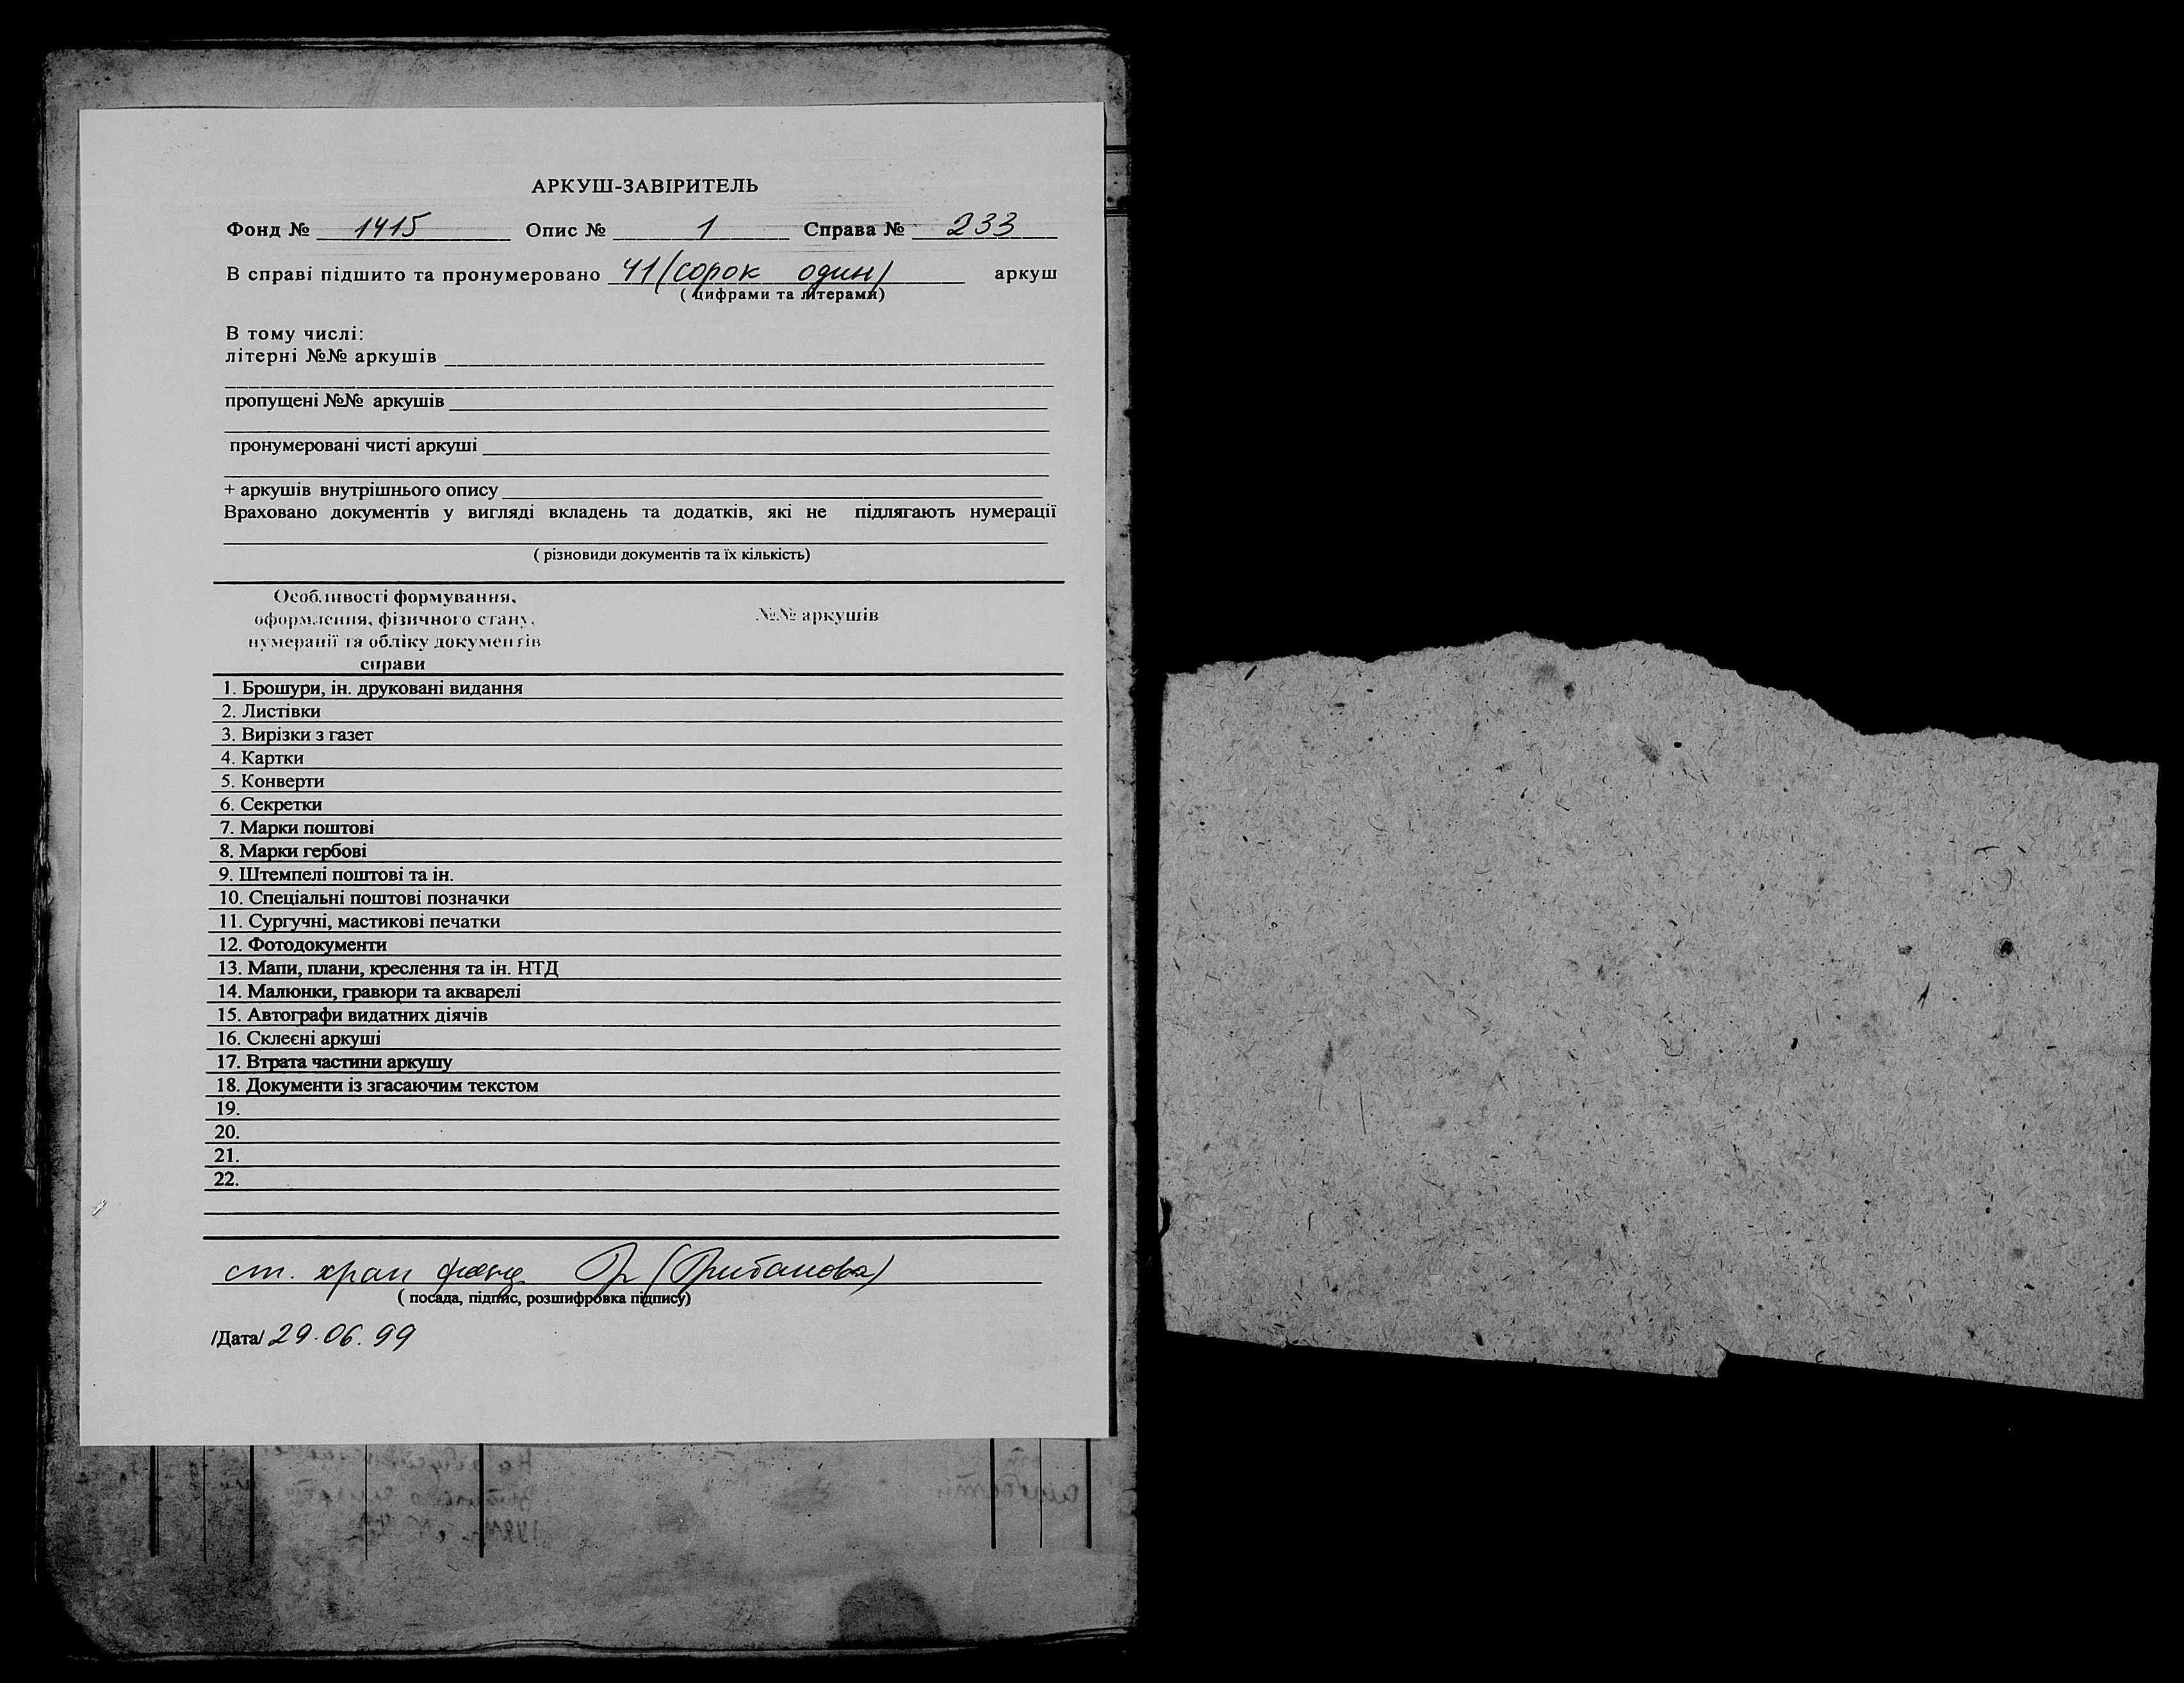 АРКУШ-ЗАВІРИТЕЛЬ
Фонд № 1415 Опис № 1 Справа № 233
В справі підшито та пронумеровано 41 (сорок один) аркуш
( цифрами та літерами)
В тому числі:
літерні №№ аркушів
пропущені №№ аркушів
пронумеровані чисті аркуші
+ аркушів внутрішнього опису
Враховано документів у вигляді вкладень та додатків, які не підлягають нумерації
( різновиди документів та їх кількість)
Особливості формування,
оформлення, фізичного стану,
нумерації та обліку документів
справи
№№ аркушів
1. Брошури, ін. друковані видання
2. Листівки
3. Вирізки з газет
4. Картки
5. Конверти
6. Секретки
7. Марки поштові
8. Марки гербові
9. Штемпелі поштові та ін.
10. Спеціальні поштові позначки
11. Сургучні, мастикові печатки
12. Фотодокументи
13. Мапи, плани, креслення та ін. НТД
14. Малюнки, гравюри та акварелі
15. Автографи видатних діячів
16. Склеєні аркуші
17. Втрата частини аркушу
18. Документи із згасаючим текстом
19.
20.
21.
22.
ст. хран фонд
( посада, підпис, розшифровка підпису)
/Дата/ 29.06.99